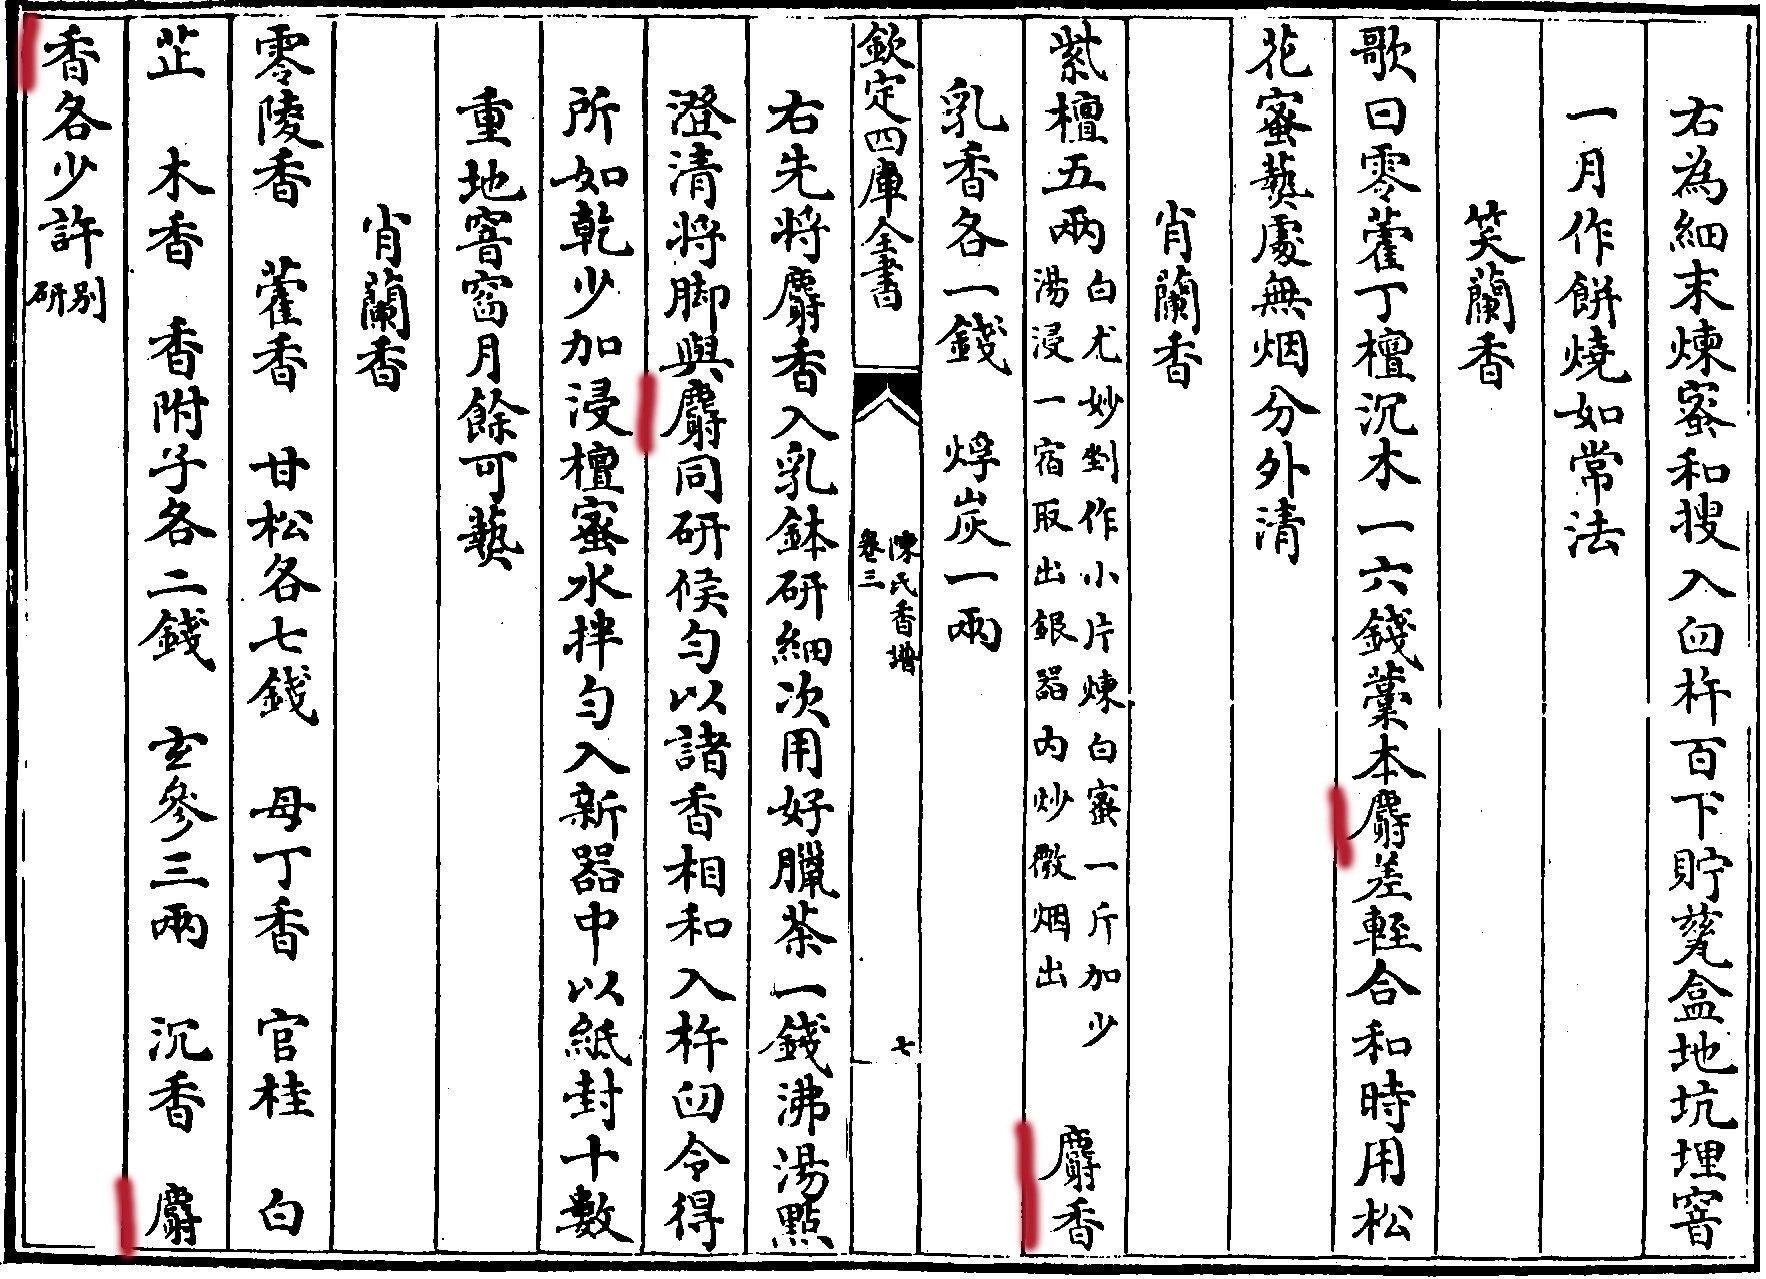 右為細末煉蜜和搜入臼杵百下貯甆盒地坑埋窨
一月作餅燒如常法
笑蘭香
歌曰零藿丁檀沉木一六錢藁本麝差輕合和時用松
花蜜爇處無烟分外清
肖蘭香
紫檀五兩白尤妙剉作小片煉白蜜一斤加少湯浸一宿取出銀器內炒微烟出 麝香
乳香各一錢 烰炭一兩
欽定四庫全書
陳氏香譜
卷三
七
右先將麝香入乳鉢研細次用好臘茶一錢沸湯點
澄清將脚與麝同研候勻以諸香相和入杵臼令得
所如乾少加浸檀蜜水拌勻入新器中以紙封十數
重地窨窗月餘可爇
肖蘭香
零陵香 藿香 甘松各七錢 母丁香 官桂 白
芷 木香 香附子各二錢 玄參三兩 沉香 麝
香各少許別研